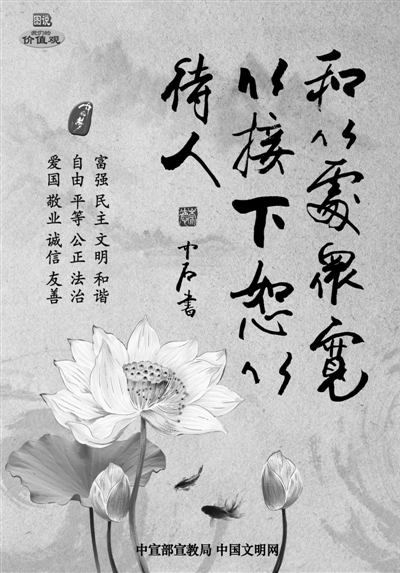 图说
我们的
价值观
和以處眾寬
以接下恕以
待人
中石書
中国梦
富强 民主 文明 和谐
自由 平等 公正 法治
爱国 敬业 诚信 友善
中宣部宣教局 中国文明网